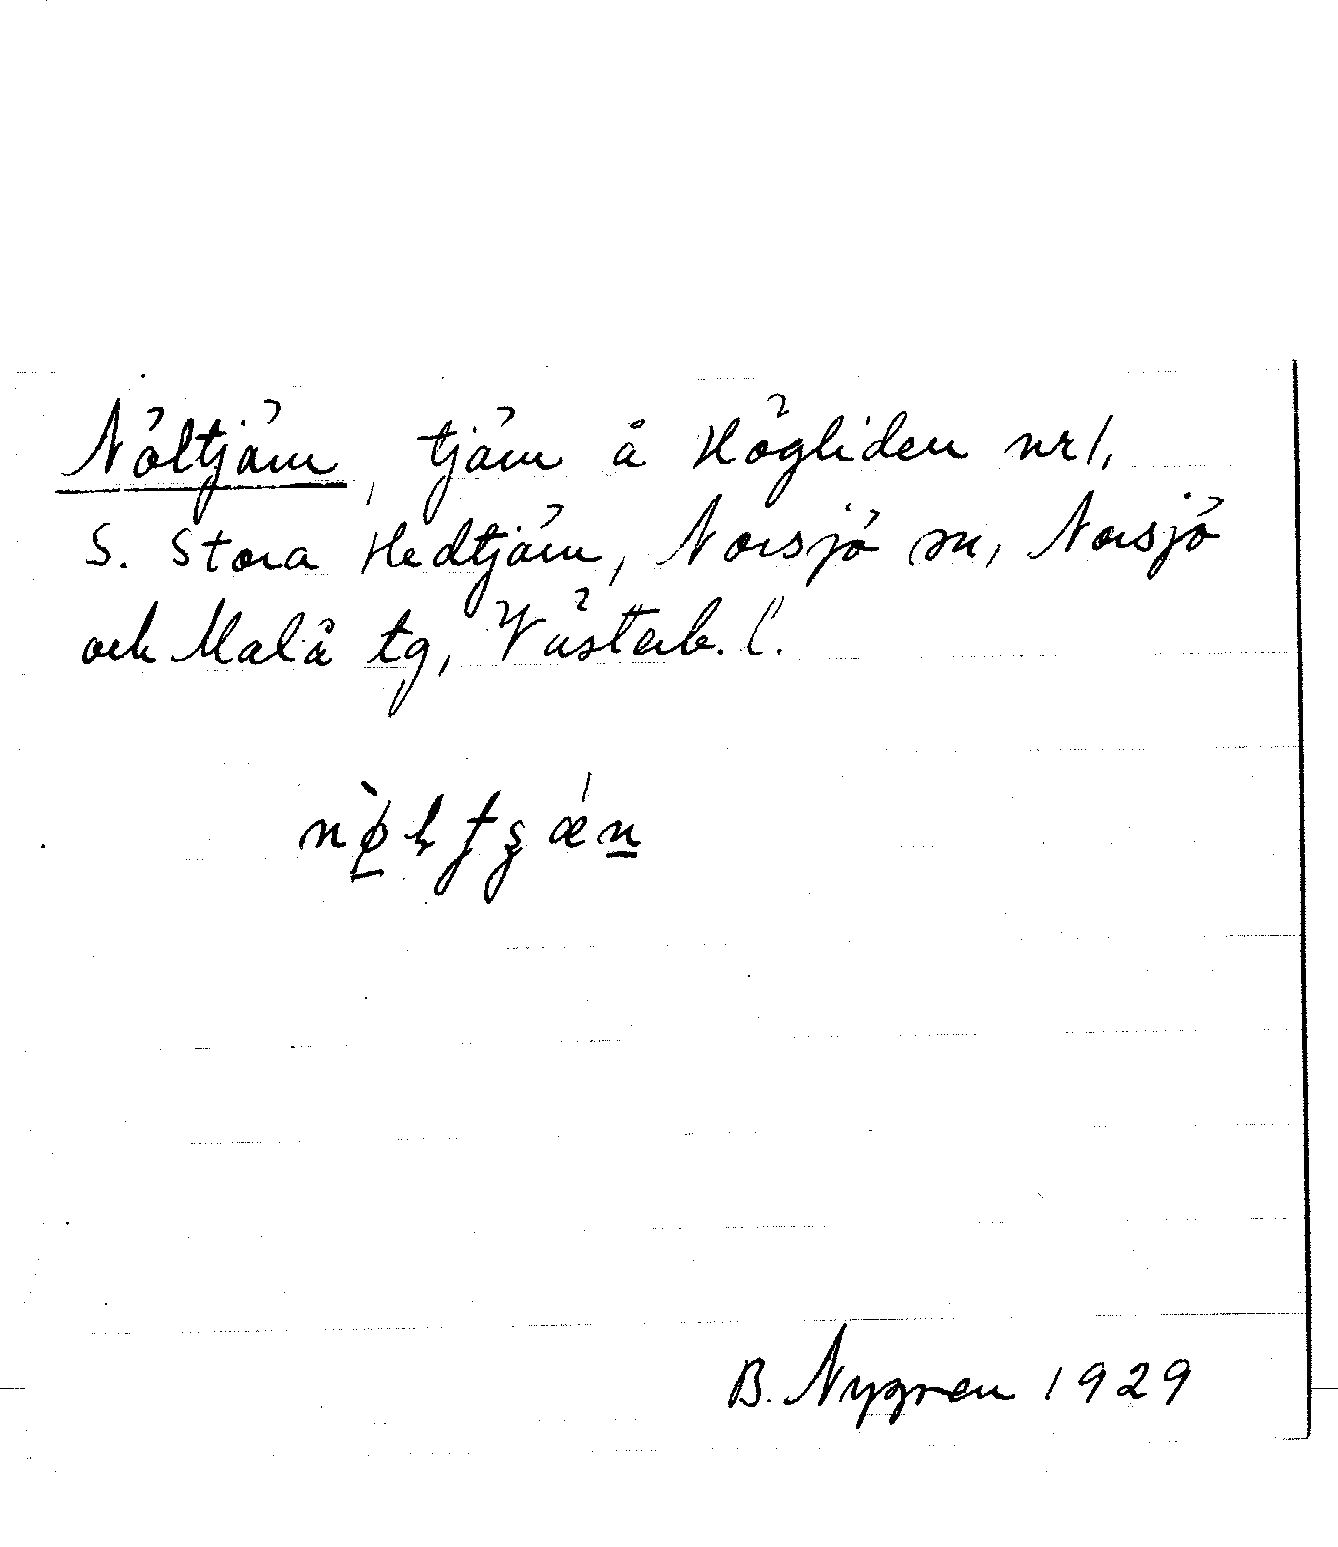 Nöltjärn, tjärn å Högliden nr 1,
S. Stora Hedtjärn, Norsjö sn, Norsjö
och Malå tg, Västerb. l.
B. Nygren 1929